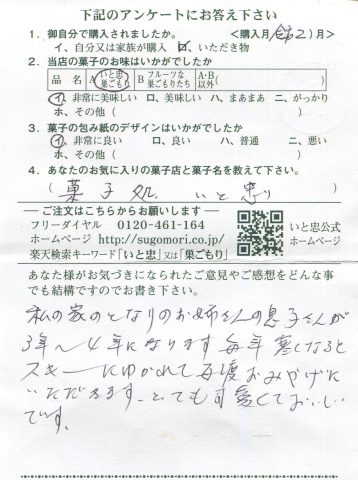 下記のアンケートにお答え下さい
1. 御自分で購入されましたか。 <購入月 2)月>
イ、自分又は家族が購入 ロ、いただき物
2. 当店の菓子のお味はいかがでしたか
品 名 A いと忠巣ごもり B フルーツな巣ごもりたち A・B以外( )
イ、非常に美味しい ロ、美味しい ハ、まあまあ ニ、がっかり
ホ、その他( )
3. 菓子の包み紙のデザインはいかがでしたか
イ、非常に良い ロ、良い ハ、普通 ニ、悪い
ホ、その他( )
4. あなたのお気に入りの菓子店と菓子名を教えて下さい。
( 菓子処 いと忠 )
― ご注文はこちらからお願いします ―
フリーダイヤル 0120-461-164
ホームページ http://sugomori.co.jp/
楽天検索キーワード「いと忠」又は「巣ごもり」
いと忠公式
ホームページ
あなた様がお気づきになられたご意見やご感想をどんな事
でも結構ですのでお書き下さい。
私の家のとなりのお姉さんの息子さんが
3年〜4年になります 毎年 寒くなると
スキーにゆかれて毎度おみやげに
いただきます。とても可愛くておいしい
です。